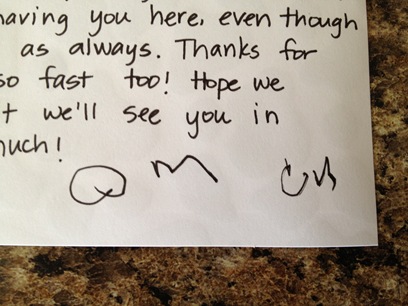 having you here, even though
as always. Thanks for
so fast too! Hope we
we'll see you in
much!